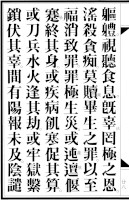 軀軆視聽食息旣辜罔極之恩
滛殺貪痴莫贖畢生之罪以至
福消致罪罪極生災或連遭偃
蹇終其身或疾病飢寒促其算
或刀兵水火逢其劫或牢獄繫
鎖伏其辜間有陽報未及陰譴